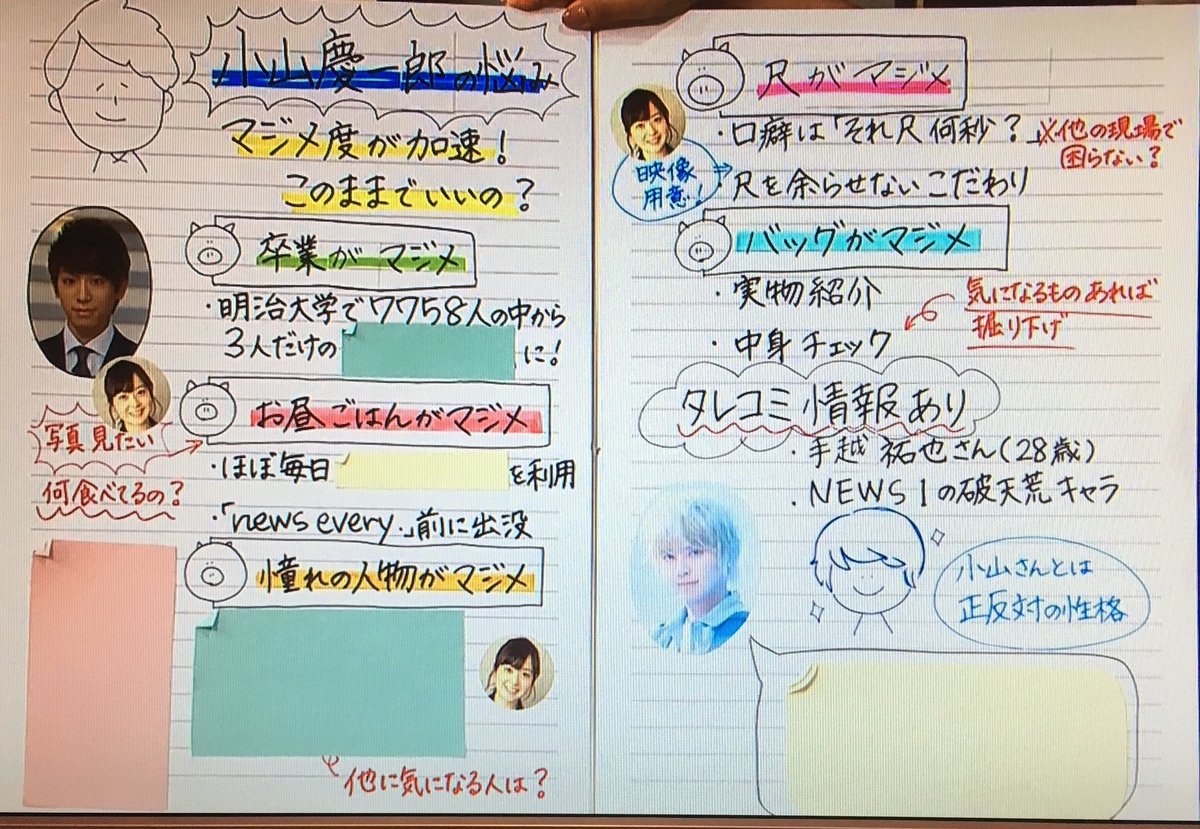 小山慶一郎の悩み
マジメ度が加速!
このままでいいの?
卒業がマジメ
・明治大学で7758人の中から
3人だけの
に!
お昼ごはんがマジメ
写真見たい
何食べてるの?
・ほぼ毎日
を利用
・「news every.」前に出没
憧れの人物がマジメ
他に気になる人は?
尺がマジメ
・口癖は「それ尺何秒?」
※他の現場で
困らない?
映像
用意!
・尺を余らせないこだわり
バッグがマジメ
・実物紹介
・中身チェック
気になるものあれば
掘り下げ
タレコミ情報あり
・手越祐也さん(28歳)
・NEWS1の破天荒キャラ
小山さんとは
正反対の性格